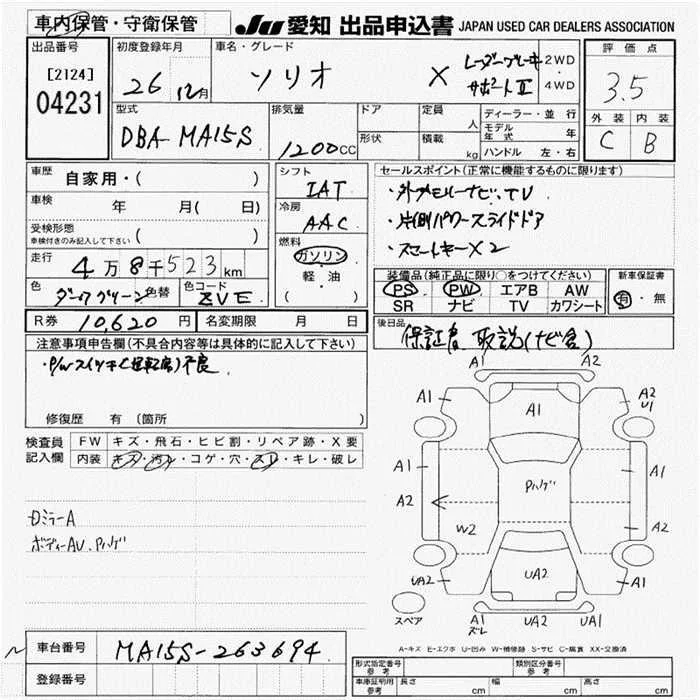 車内保管・守衛保管
JU 愛知 出品申込書 JAPAN USED CAR DEALERS ASSOCIATION
出品番号
[2124]
04231
初度登録年月
26 12月
車名・グレード
ソリオ X レーダーブレーキ
サポートⅡ
2WD
4WD
評価点
3.5
外装 内装
C B
型式
DBA-MA15S
排気量
1200cc
ドア
形状
定員
人
積載
kg
ディーラー・並行
モデル年式 年
ハンドル 左・右
車歴 自家用・( )
車検 年 月( 日)
受検形態
車検付きのみ記入して下さい ( )
走行 4万8千523km
色 ダークグリーン 色替 色コード ZVE
シフト
IAT
冷房
AAC
燃料
ガソリン
軽・油
( )
セールスポイント(正常に機能するものに限ります)
・外メモリーナビ、TV
・片側パワースライドドア
・スマートキーX2
装備品(純正品に限り○をつけてください)
PS PW エアB AW
SR ナビ TV カワシート
新車保証書
有・無
R券 10,620円 名変期限 月 日
後日品
保証書 取説(ナビ含)
注意事項申告欄(不具合内容等は具体的に記入して下さい)
・P/Wスイッチ(運転席)不良
修復歴 有 (箇所 )
検査員
記入欄
FW キズ・飛石・ヒビ割・リペア跡・X要
内装 キズ・汚レ・コゲ・穴・スレ・キレ・破レ
ミラーA
ボディーAU、Pハゲ
A1 A2
A1 A1 A2
U1
A1 A1
Pハゲ
A2 W2 A2
UA2 UA2 A1
スペア A1
ズレ
UA2 UA1
A-キズ E-エクボ U-凹み W-補修跡 S-サビ C-腐食 XX-交換済
車台番号 MA15S-263694
登録番号
形式指定番号
参考
類別区分番号
参考
車庫証明用
参考
長さ cm 幅 cm 高さ cm